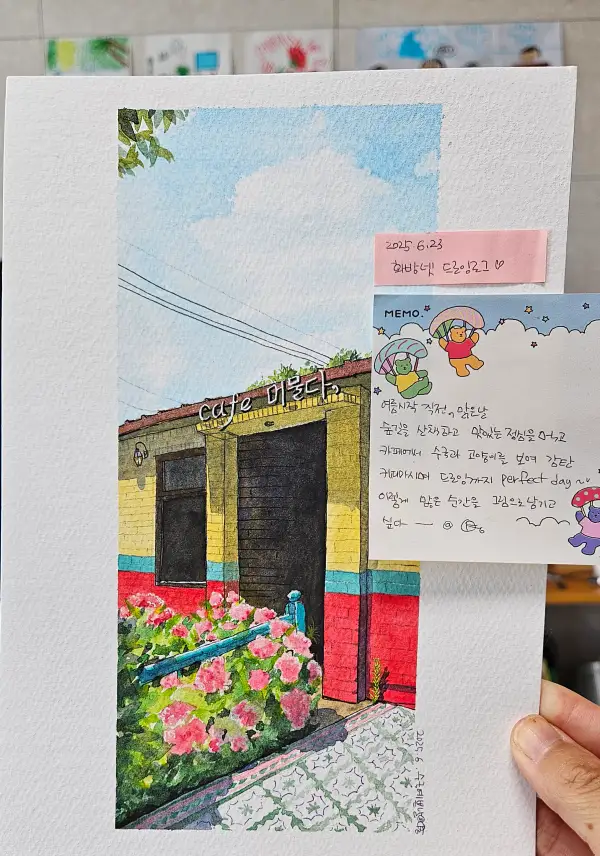 cafe 머물다,
2025.6.23
화방넷 드로잉로그 ♡
MEMO.
여름시작 직전, 맑은날
숲길을 산책하고 맛있는 점심을 먹고
카페에서 수국과 고양이를 보며 감탄
커피마시며 드로잉까지 perfect day~
이렇게 많은 순간을 그림으로 남기고
싶다 — @
2025.6